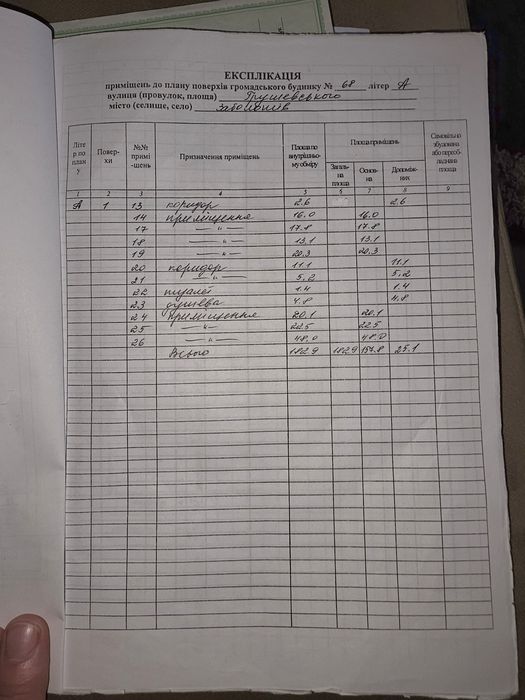 ЕКСПЛІКАЦІЯ
приміщень до плану поверхів громадського будинку № 68 літер А
вулиця (провулок, площа)
місто (селище, село)
Літер по плану Повер-хи №№ примі-шень Призначення приміщень Площа по внутрішньому обміру Площа приміщень Самовільно збудована або переобладнана площа
Загальна площа Основ-на Допоміж-них
1 2 3 4 5 6 7 8 9
А 1 13 коридор 2.6 2.6
14 приміщення 16.0 16.0
17 —"— 17.8 17.8
18 —"— 13.1 13.1
19 —"— 20.3 20.3
20 коридор 11.1 11.1
21 —"— 5.2 5.2
22 туалет 1.4 1.4
23 душева 4.8 4.8
24 приміщення 20.1 20.1
25 —"— 22.5 22.5
26 —"— 48.0 48.0
Всього 182.9 182.9 157.8 25.1